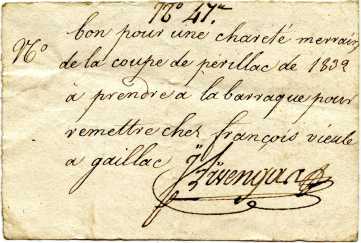 N.o 47.
N.o bon pour une chareté merrain
de la coupe de perillac de 1832
à prendre a la barraque pour
remettre ches françois vieule
a gaillac